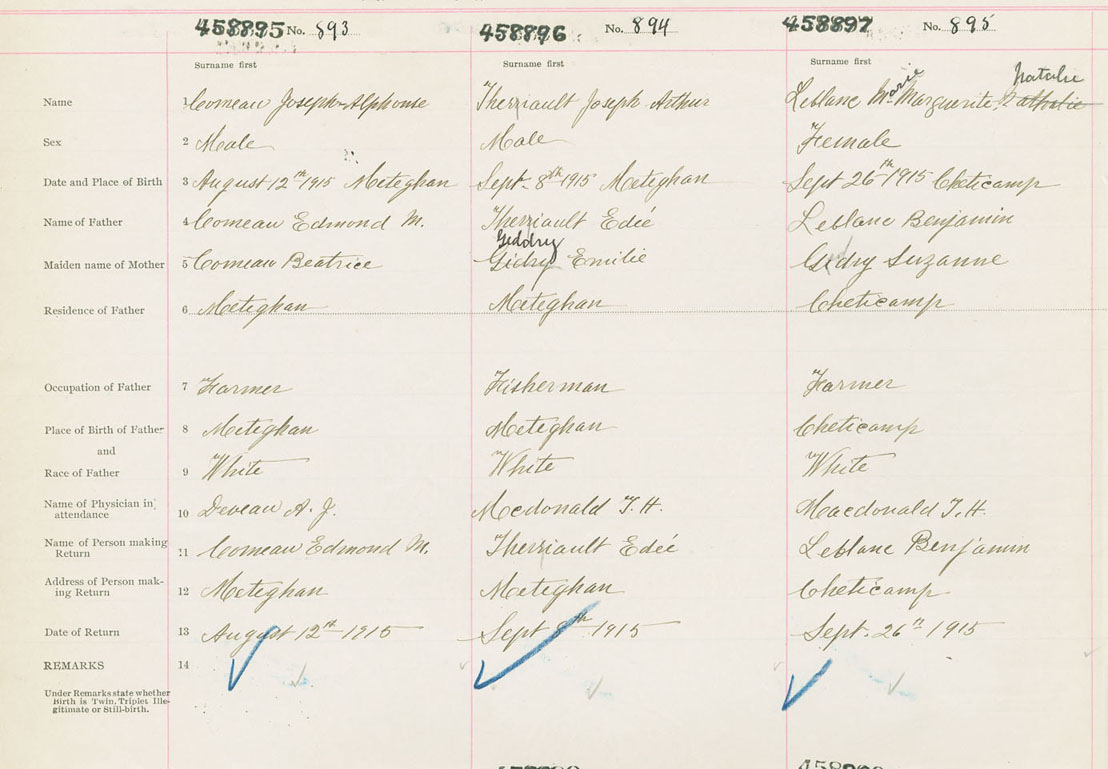 458895 No. 893 458896 No. 894 458897 No. 895
Surname first Surname first Surname first
Natalie
Marie
Name 1 Comeau Joseph Alphonse Therriault Joseph Arthur Leblanc Mie Marguerite Nathalie
Sex 2 Male Male Female
Date and Place of Birth 3 August 12th 1915 Meteghan Sept. 8th 1915 Meteghan Sept 26th 1915 Cheticamp
Name of Father 4 Comeau Edmond M. Therriault Edié Leblanc Benjamin
Geddry
Maiden name of Mother 5 Comeau Beatrice Gidry Emilie Gidry Suzanne
Residence of Father 6 Meteghan Meteghan Cheticamp
Occupation of Father 7 Farmer Fisherman Farmer
Place of Birth of Father 8 Meteghan Meteghan Cheticamp
and
Race of Father 9 White White White
Name of Physician in attendance 10 Deveau A. J. Mcdonald T. H. Macdonald T. H.
Name of Person making Return 11 Comeau Edmond M. Therriault Edié Leblanc Benjamin
Address of Person mak-
ing Return 12 Meteghan Meteghan Cheticamp
Date of Return 13 August 12th 1915 Sept 8th 1915 Sept. 26th 1915
REMARKS 14
Under Remarks state whether
Birth is Twin, Triplet Ille-
gitimate or Still-birth.